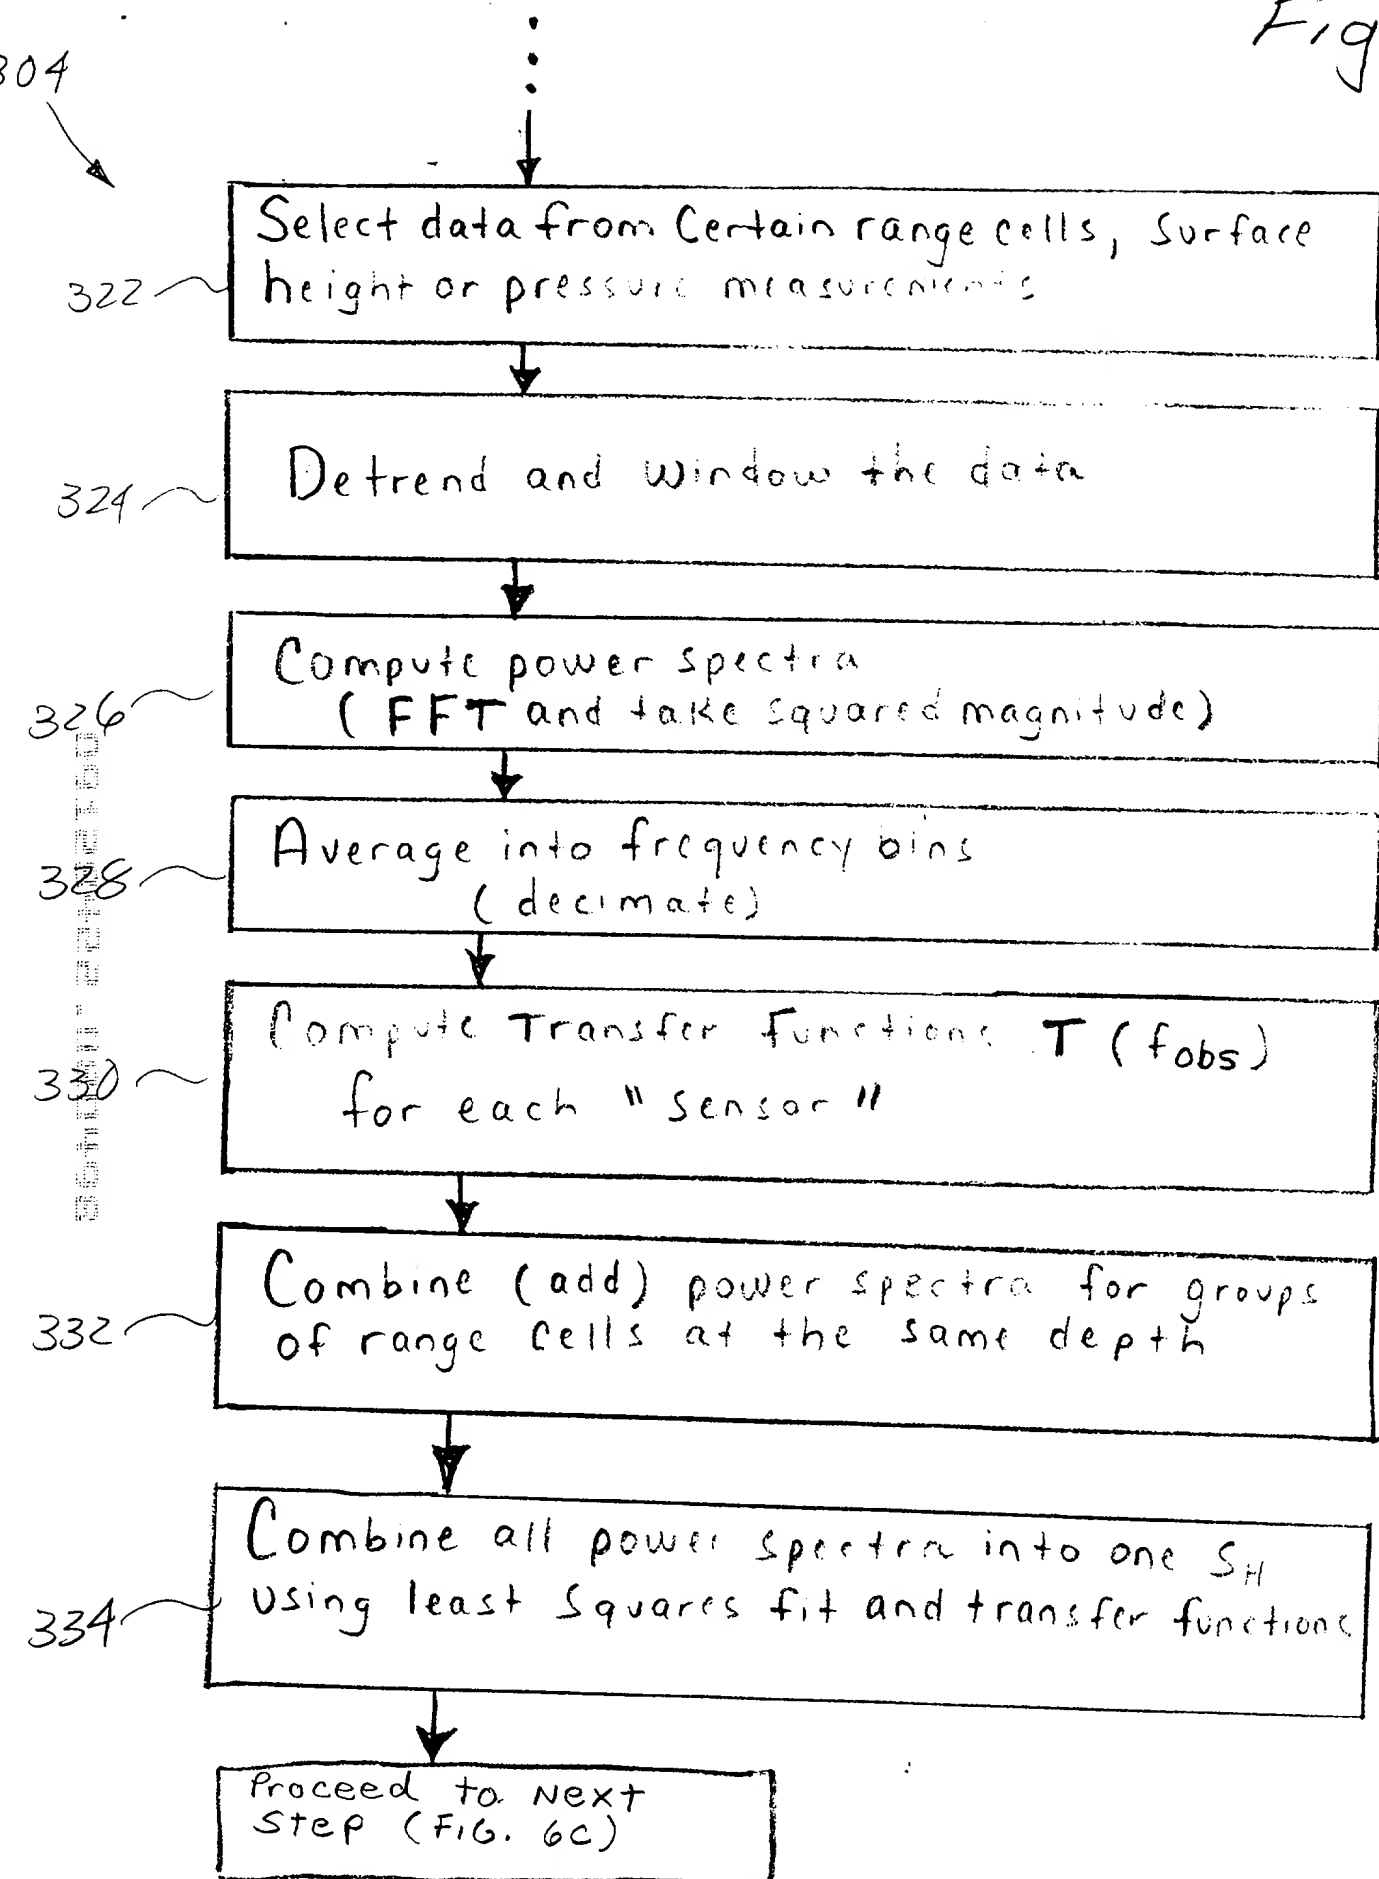 Fig
304
Select data from Certain range cells, Surface
height or pressure measurements
322
Detrend and Window the data
324
Compute power spectra
(FFT and take squared magnitude)
326
Average into frequency bins
(decimate)
328
Compute Transfer Functions T (fobs)
for each "sensor"
330
Combine (add) power spectra for groups
of range cells at the same depth
332
Combine all power spectra into one SH
using least squares fit and transfer functions
334
Proceed to Next
Step (FIG. 6C)